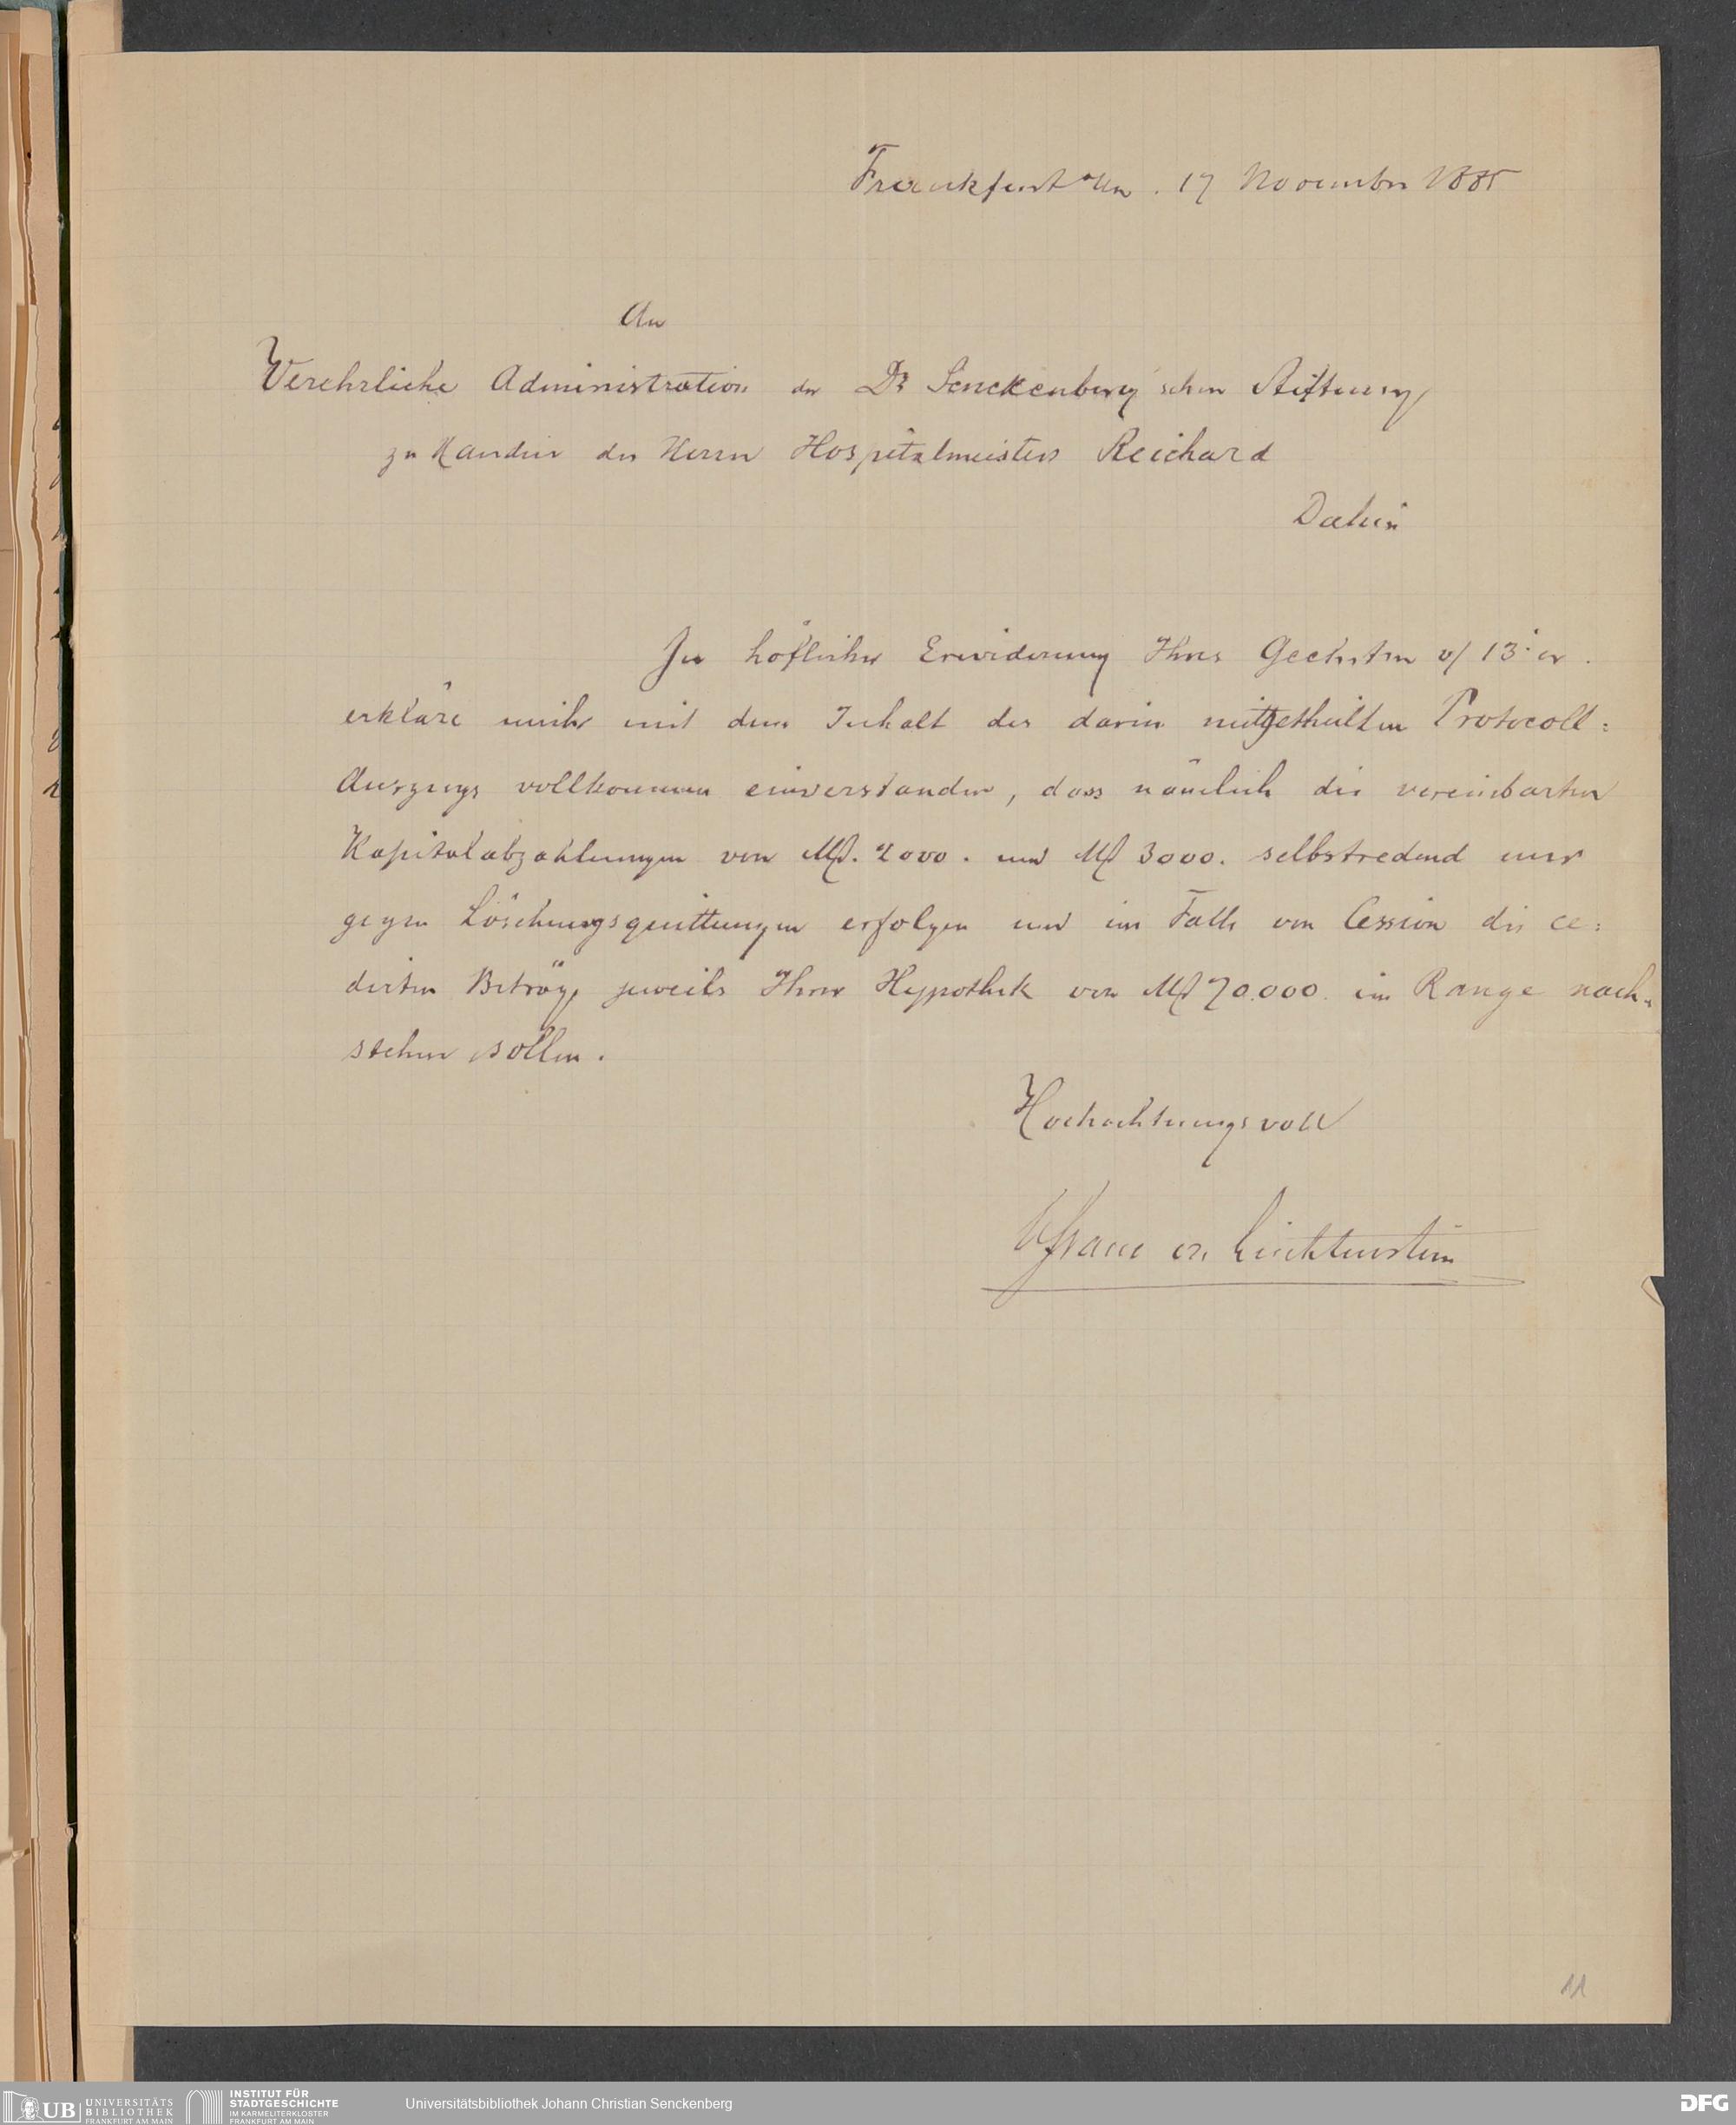 Frankfurt a/m. 17 November 1885
An
Verehrliche Administration der Dr Senckenberg'schen Stiftung
zu Handen des Herrn Hospitalmeisters Reichard
Dahier
In höflicher Erwiderung Ihres Geehrten v/ 13. cr.
erkläre mich mit dem Inhalt des darin mitgetheilten Protocoll=
Auszugs vollkommen einverstanden, dass nämlich die vereinbarten
Kapitalabzahlungen von M. 2000. und M 3000. selbstredend nur
gegen Löschungsquittungen erfolgen und im Falle von Cession die ce=
dirten Beträge jeweils Ihrer Hypothek von M 70.000. im Range nach=
stehen sollen.
Hochachtungsvoll
Lichtenstein
11
UB UNIVERSITÄTS
BIBLIOTHEK
FRANKFURT AM MAIN
INSTITUT FÜR
STADTGESCHICHTE
IM KARMELITERKLOSTER
FRANKFURT AM MAIN
Universitätsbibliothek Johann Christian Senckenberg
DFG